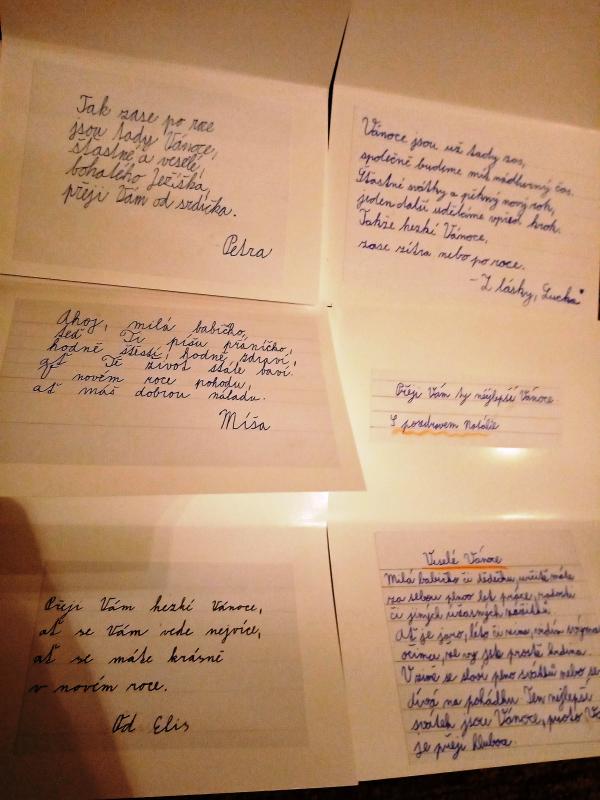 Tak zase po roce
jsou tady Vánoce,
šťastné a veselé,
bohatého Ježíška,
přeji Vám od srdíčka.
Petra
Vánoce jsou už tady zas,
společně budeme mít nádherný čas.
Šťastné svátky a pěkný nový rok,
jeden další uděláme vpřed krok.
Takže hezké Vánoce,
zase zítra nebo po roce.
- Z lásky, Lucka
Ahoj, milá babičko,
teď Ti píšu přáníčko,
hodně štěstí, hodně zdraví,
ať Tě život stále baví.
V novém roce pohodu,
ať máš dobrou náladu.
Míša
Přeji Vám ty nejlepší Vánoce
S pozdravem Natálie
Přeji Vám hezké Vánoce,
ať se Vám vede nejvíce,
ať se máte krásně
v novém roce.
Od Elis
Veselé Vánoce
Milá babičko či dědečku, určitě máte
za sebou plno let práce, radosti
či jiných úžasných zážitků.
Ať je jaro, léto či zima, vidím
očima, že vy jak prostě hrdina.
V zimě se slaví plno svátků nebo se
dívá na pohádku. Ten nejlepší
svátek jsou Vánoce, proto
je přeji hluboce.